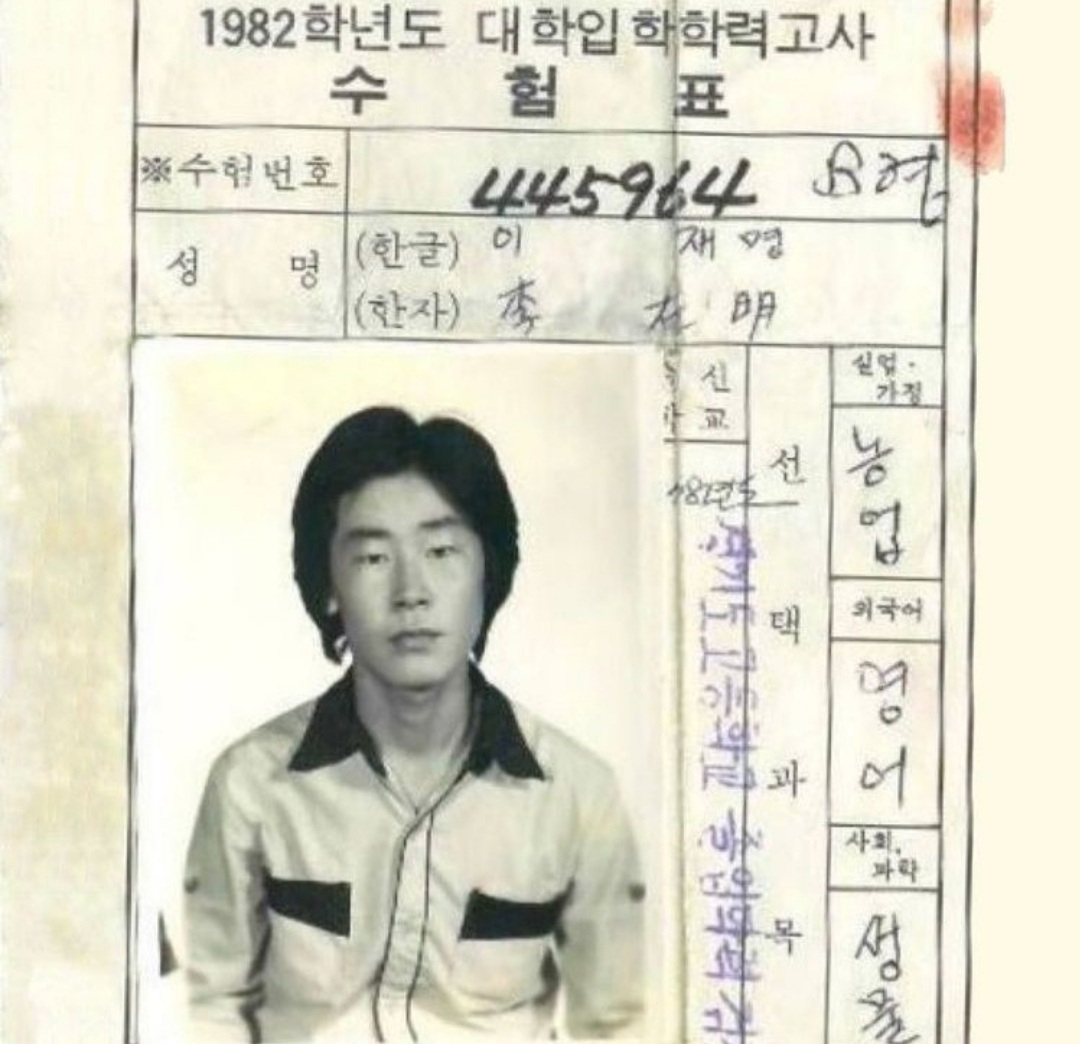 1982학년도 대학입학학력고사
수 험 표
※수험번호 445964
성 명 (한글) 이 재 명
(한자) 李 在 明
신
교
선 택 과 목
실업·
가정
농업
외국어
영어
사회,
과학
생물